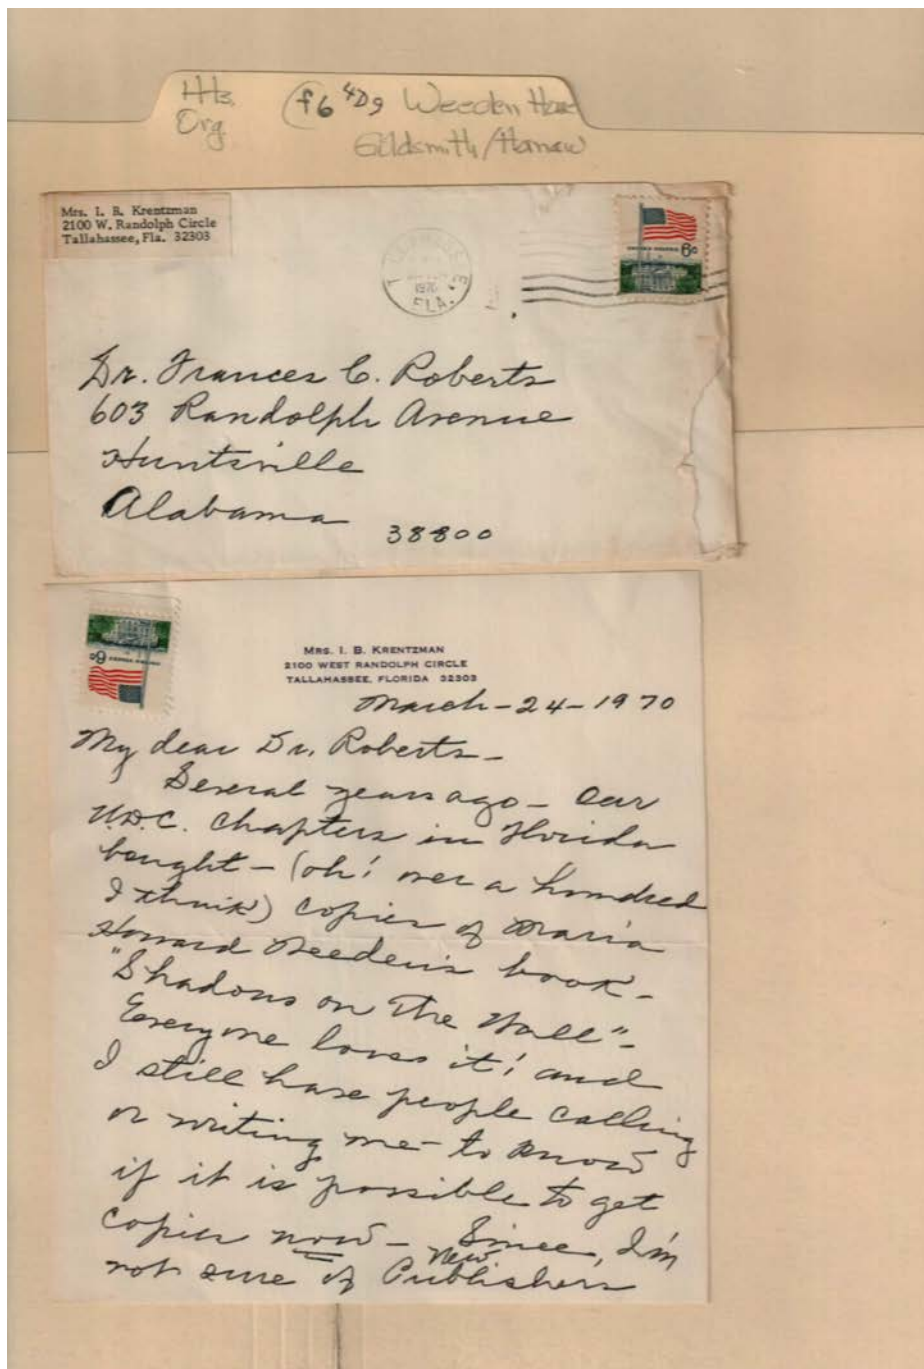 HHs.
Org.
(f6 4D9 Weeden
Gildsmith/
Mrs. I. B. Krentzman
2100 W. Randolph Circle
Tallahassee, Fla. 32303
1970
FLA.
6c
Dr. Frances C. Roberts
603 Randolph Avenue
Huntsville
Alabama
38800
6c
MRS. I. B. KRENTZMAN
2100 WEST RANDOLPH CIRCLE
TALLAHASSEE, FLORIDA 32303
March-24-1970
My dear Dr. Roberts-
Several years ago- Our
U.D.C. Chapters in Florida
bought- (oh! over a hundred
I think) copies of Maria
Howard Weeden's book-
"Shadows on The Wall"-
Everyone loves it! and
I still have people calling
or writing me- to know
if it is possible to get
copies now- Since, I'm
not sure of New Publishers